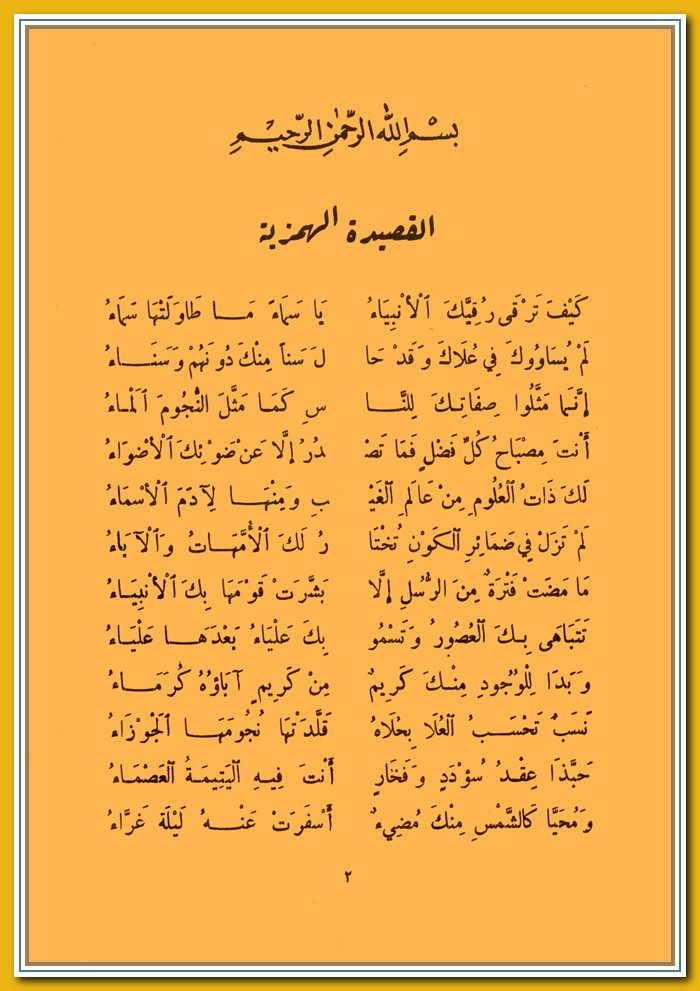 بِسْمِ اللهِ الرَّحْمٰنِ الرَّحِيْمِ
القصيدة الهمزية
كَيْفَ تَرْقَى رُقِيَّكَ ٱلْأَنْبِيَاءُ يَا سَمَاءً مَا طَاوَلَتْهَا سَمَاءُ
لَمْ يُسَاوُوكَ فِي عُلَاكَ وَقَدْ حَا لَ سَناً مِنْكَ دُونَهُمْ وَسَنَاءُ
إِنَّمَا مَثَّلُوا صِفَاتِكَ لِلنَّا سِ كَمَا مَثَّلَ النُّجُومَ ٱلْمَاءُ
أَنْتَ مِصْبَاحُ كُلِّ فَضْلٍ فَمَا تَصْ دُرُ إِلَّا عَنْ ضَوْئِكَ ٱلْأَضْوَاءُ
لَكَ ذَاتُ ٱلْعُلُومِ مِنْ عَالَمِ ٱلْغَيْ بِ وَمِنْهَا لِآدَمَ ٱلْأَسْمَاءُ
لَمْ تَزَلْ فِي ضَمَائِرِ ٱلْكَوْنِ تُخْتَا رُ لَكَ ٱلْأُمَّهَاتُ وَٱلْآبَاءُ
مَا مَضَتْ فَتْرَةٌ مِنَ الرُّسُلِ إِلَّا بَشَّرَتْ قَوْمَهَا بِكَ ٱلْأَنْبِيَاءُ
تَتَبَاهَى بِكَ ٱلْعُصُورُ وَتَسْمُو بِكَ عَلْيَاءُ بَعْدَهَا عَلْيَاءُ
وَبَدَا لِلْوُجُودِ مِنْكَ كَرِيمٌ مِنْ كَرِيمٍ آبَاؤُهُ كُرَمَاءُ
نَسَبٌ تَحْسَبُ ٱلْعُلَا بِحُلَاهُ قَلَّدَتْهَا نُجُومَهَا ٱلْجَوْزَاءُ
حَبَّذَا عِقْدُ سُؤْدَدٍ وَفَخَارٍ أَنْتَ فِيهِ ٱلْيَتِيمَةُ ٱلْعَصْمَاءُ
وَمُحَيَّا كَالشَّمْسِ مِنْكَ مُضِيءٌ أَسْفَرَتْ عَنْهُ لَيْلَةٌ غَرَّاءُ
٢